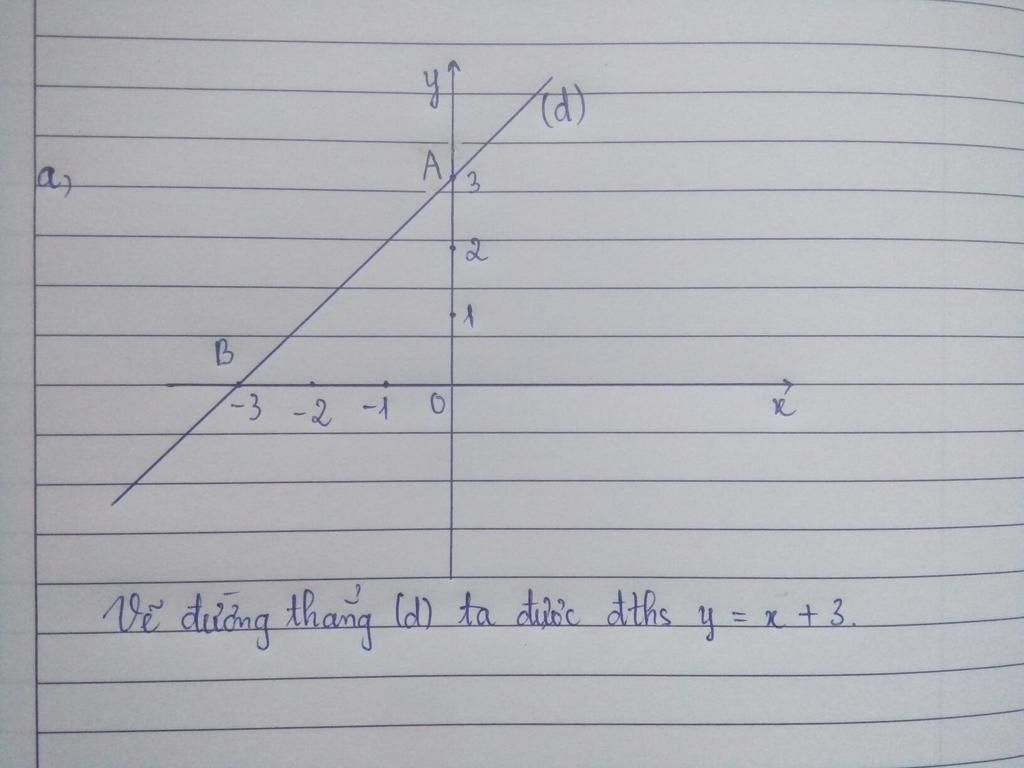 y
(d)
A
a,
3
2
1
B
-3 -2 -1 0
x
Vẽ đường thẳng (d) ta được đths y = x + 3.